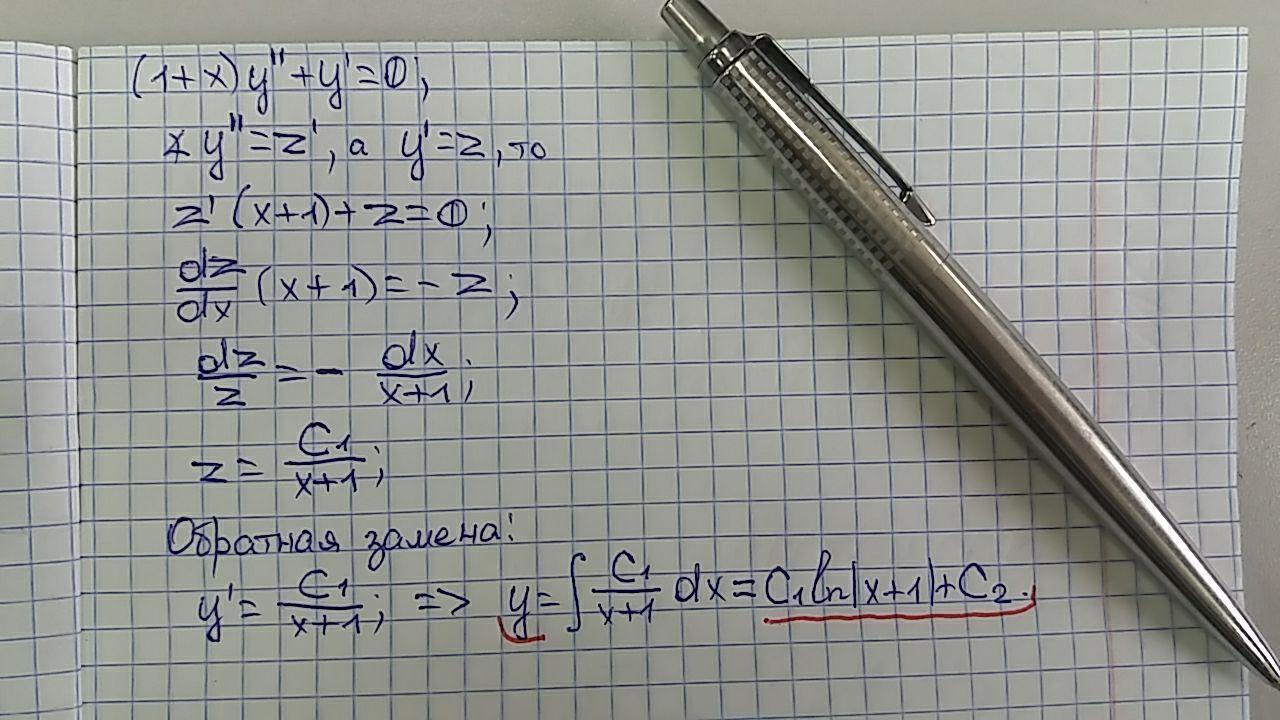 (1+x)y''+y'=0,
y''=z', а y'=z, то
z'(x+1)+z=0;
dz/dx (x+1)=-z;
dz/z = - dx/x+1;
z = C1/x+1;
Обратная замена:
y' = C1/x+1; => y=∫ C1/x+1 dx = C1 ln|x+1|+C2.